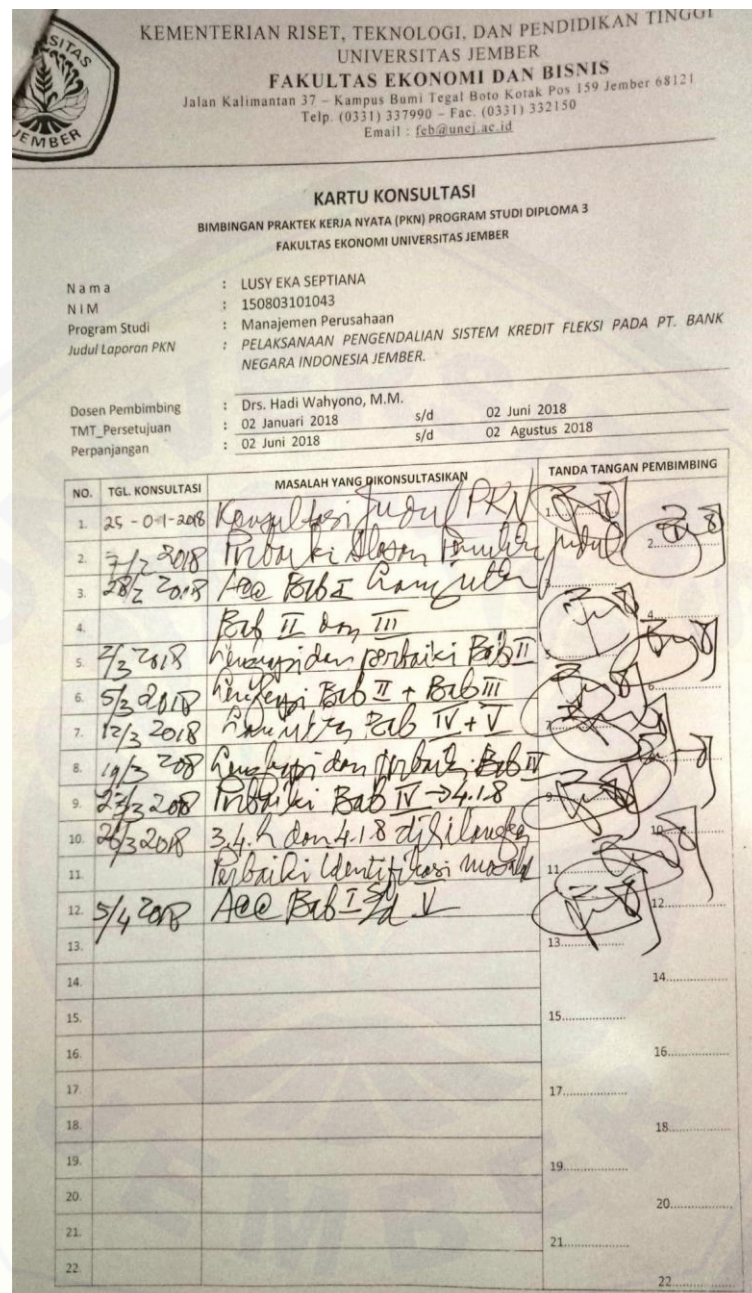 KEMENTERIAN RISET, TEKNOLOGI, DAN PENDIDIKAN TINGGI
UNIVERSITAS JEMBER
FAKULTAS EKONOMI DAN BISNIS
Jalan Kalimantan 37 – Kampus Bumi Tegal Boto Kotak Pos 159 Jember 68121
Telp. (0331) 337990 – Fac. (0331) 332150
Email : feb@unej.ac.id
SITAS
JEMBER
KARTU KONSULTASI
BIMBINGAN PRAKTEK KERJA NYATA (PKN) PROGRAM STUDI DIPLOMA 3
FAKULTAS EKONOMI UNIVERSITAS JEMBER
N a m a : LUSY EKA SEPTIANA
N I M : 150803101043
Program Studi : Manajemen Perusahaan
Judul Laporan PKN : PELAKSANAAN PENGENDALIAN SISTEM KREDIT FLEKSI PADA PT. BANK
NEGARA INDONESIA JEMBER.
Dosen Pembimbing : Drs. Hadi Wahyono, M.M.
TMT_Persetujuan : 02 Januari 2018 s/d 02 Juni 2018
Perpanjangan : 02 Juni 2018 s/d 02 Agustus 2018
NO. TGL. KONSULTASI MASALAH YANG DIKONSULTASIKAN TANDA TANGAN PEMBIMBING
1. 25-01-2018 Konsultasi Judul PKN 1.
2. 7/2 2018 Perbaiki Alasan Judul 2.
3. 28/2 2018 Acc Bab I 3.
4. Bab II dan III 4.
5. 2/3 2018 dan perbaiki Bab II 5.
6. 5/3 2018 Bab II + Bab III 6.
7. 12/3 2018 Bab IV + V 7.
8. 19/3 208 dan perbaiki Bab IV
9. 23/3 208 Perbaiki Bab IV → 4.1.8 9.
10. 26/3 2018 3.4.h dan 4.1.8 dihilangkan 10.
11. Perbaiki Identifikasi 11.
12. 5/4 2018 Acc Bab I s/d V 12.
13. 13.
14. 14.
15. 15.
16. 16.
17. 17.
18. 18.
19. 19.
20. 20.
21. 21.
22. 22.